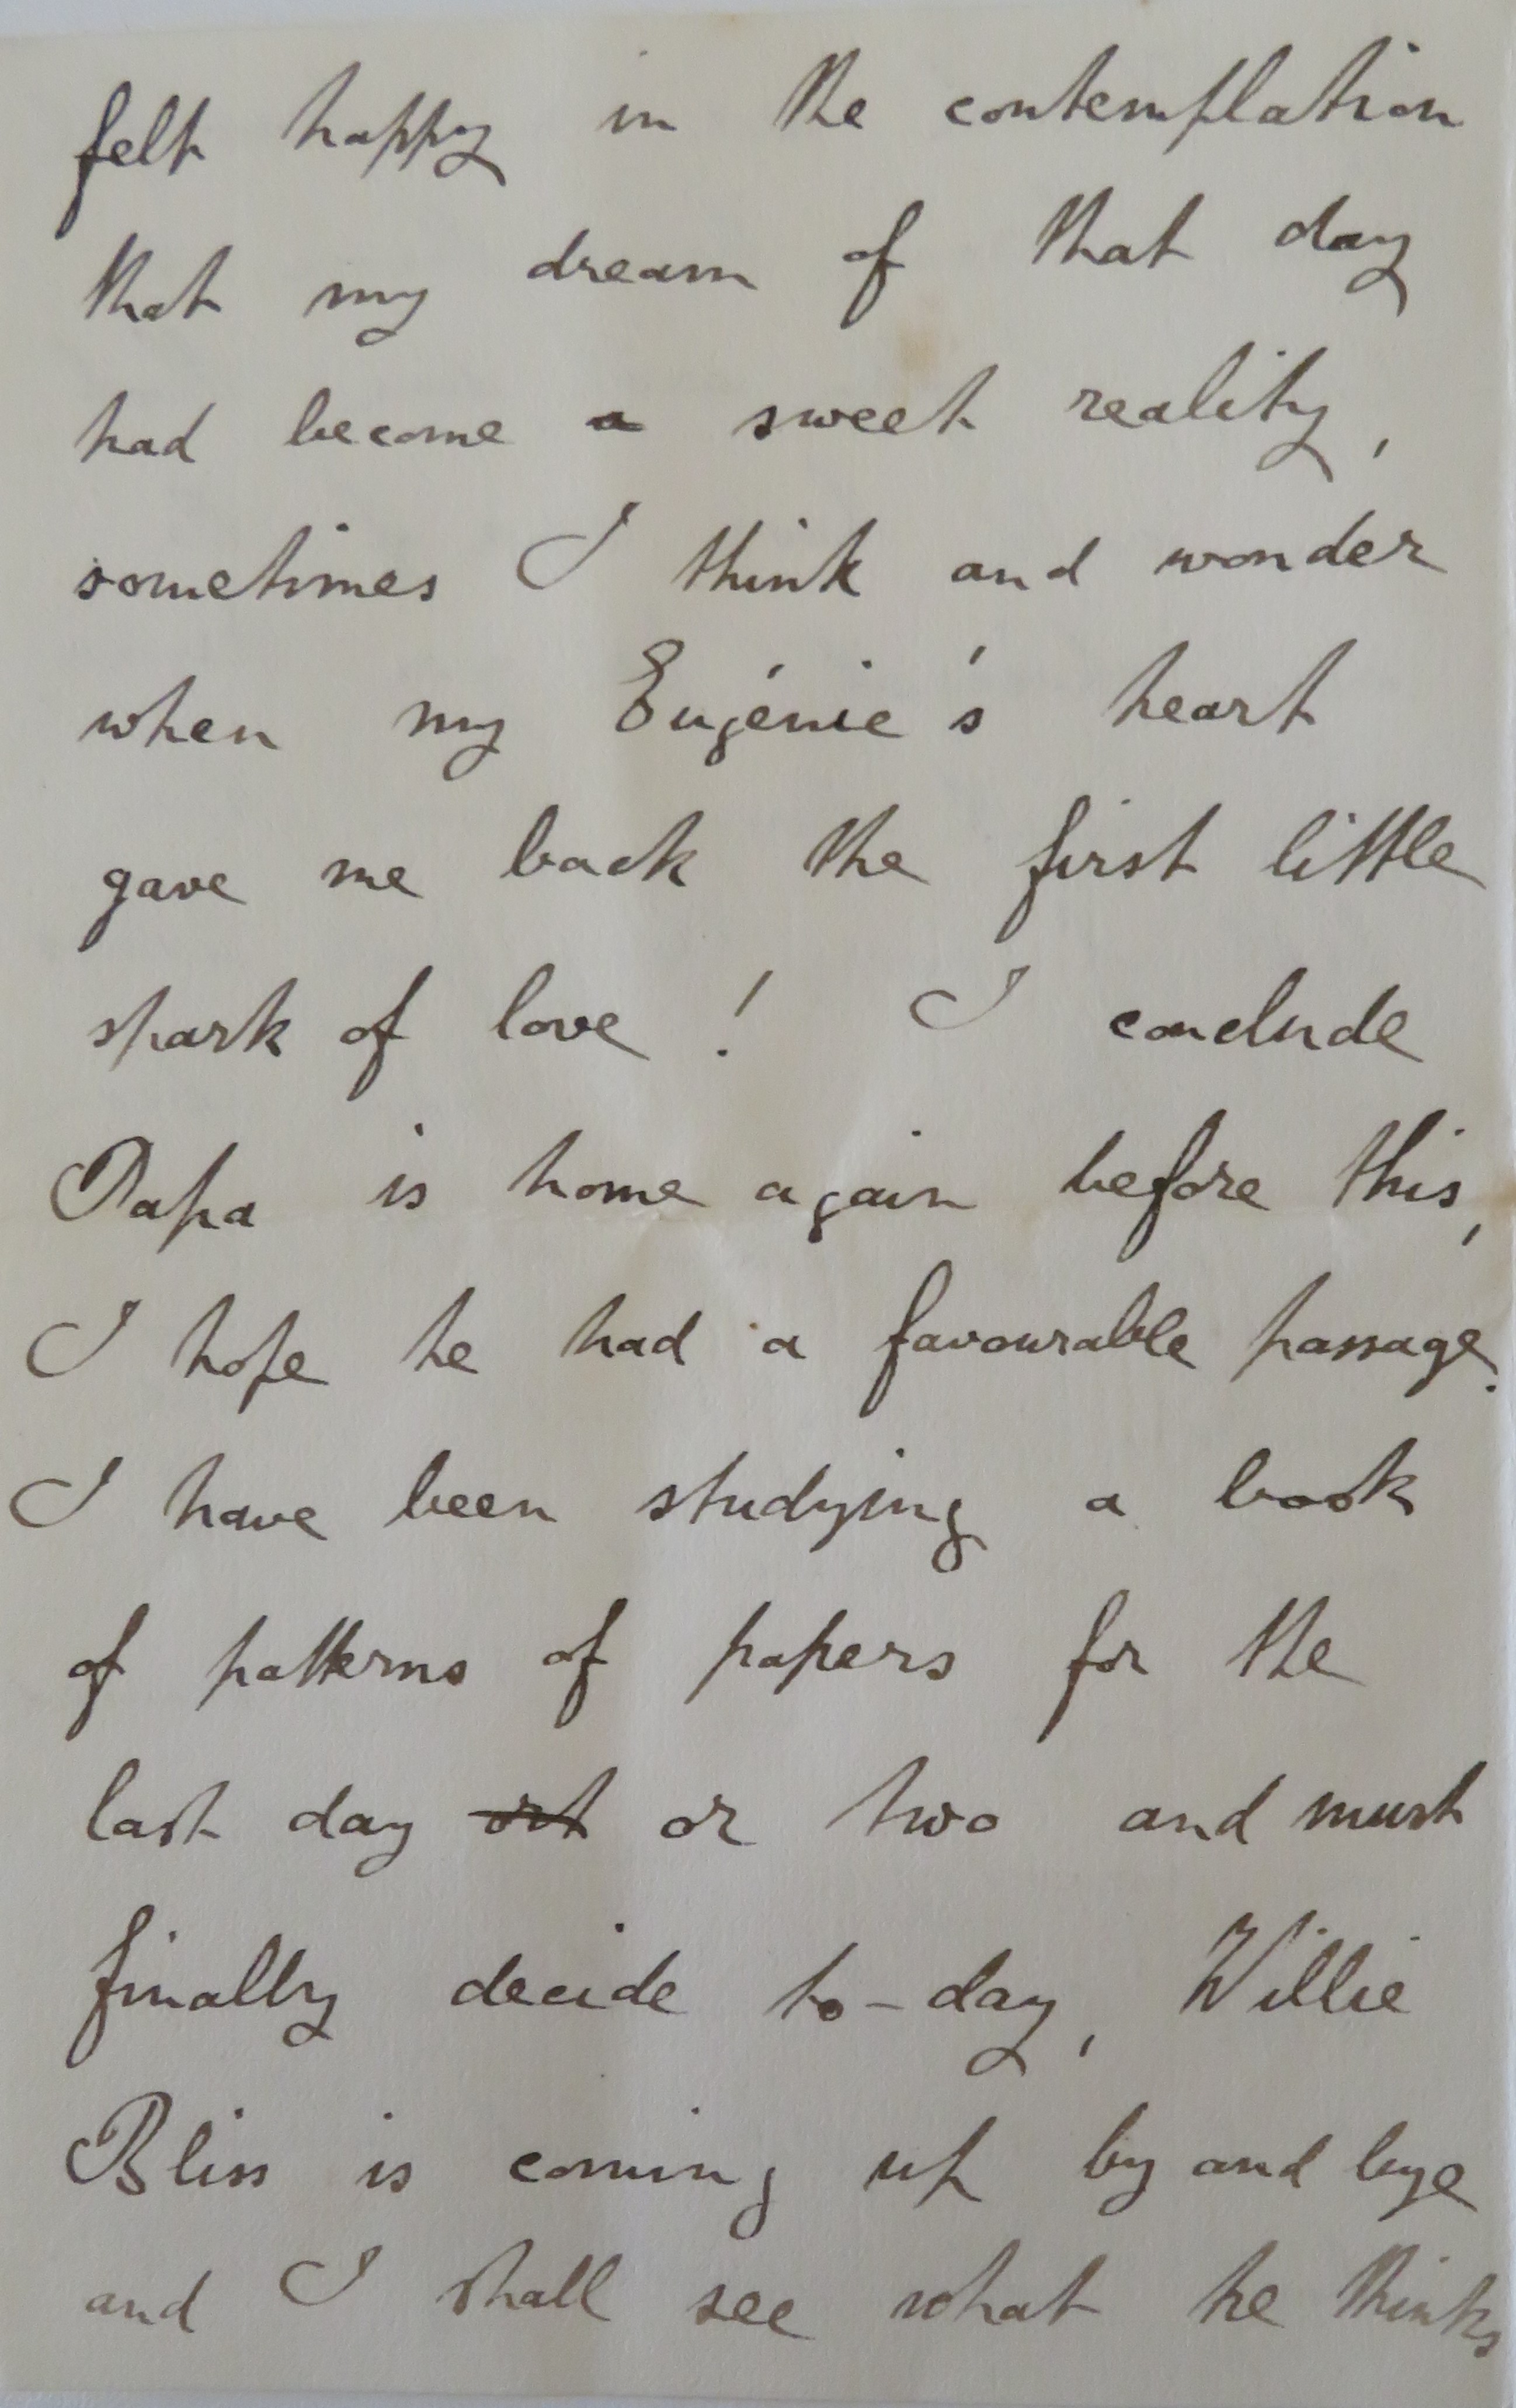 felt happy in the contemplation
that my dream of that day
had become a sweet reality,
sometimes I think and wonder
when my Eugénie's heart
gave me back the first little
spark of love ! I conclude
Papa is home again before this,
I hope he had a favourable passage.
I have been studying a book
of patterns of papers for the
last day or two and must
finally decide to-day, Willie
Bliss is coming up by and bye
and I shall see what he thinks